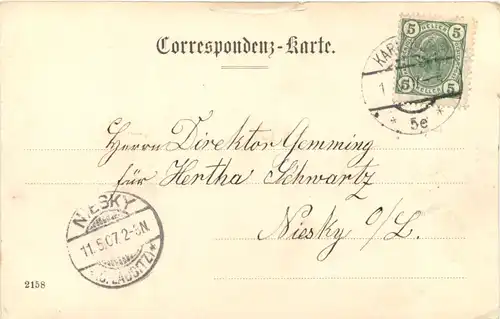 Correspondenz-Karte.
5 HELLER 5
5 HELLER 5
KAR
1
* 5e *
Herrn Direktor Gemming
für Hertha Schwartz
Niesky O/L.
NIESKY
11.5.07.2-3N.
(O. LAUSITZ)*
2158